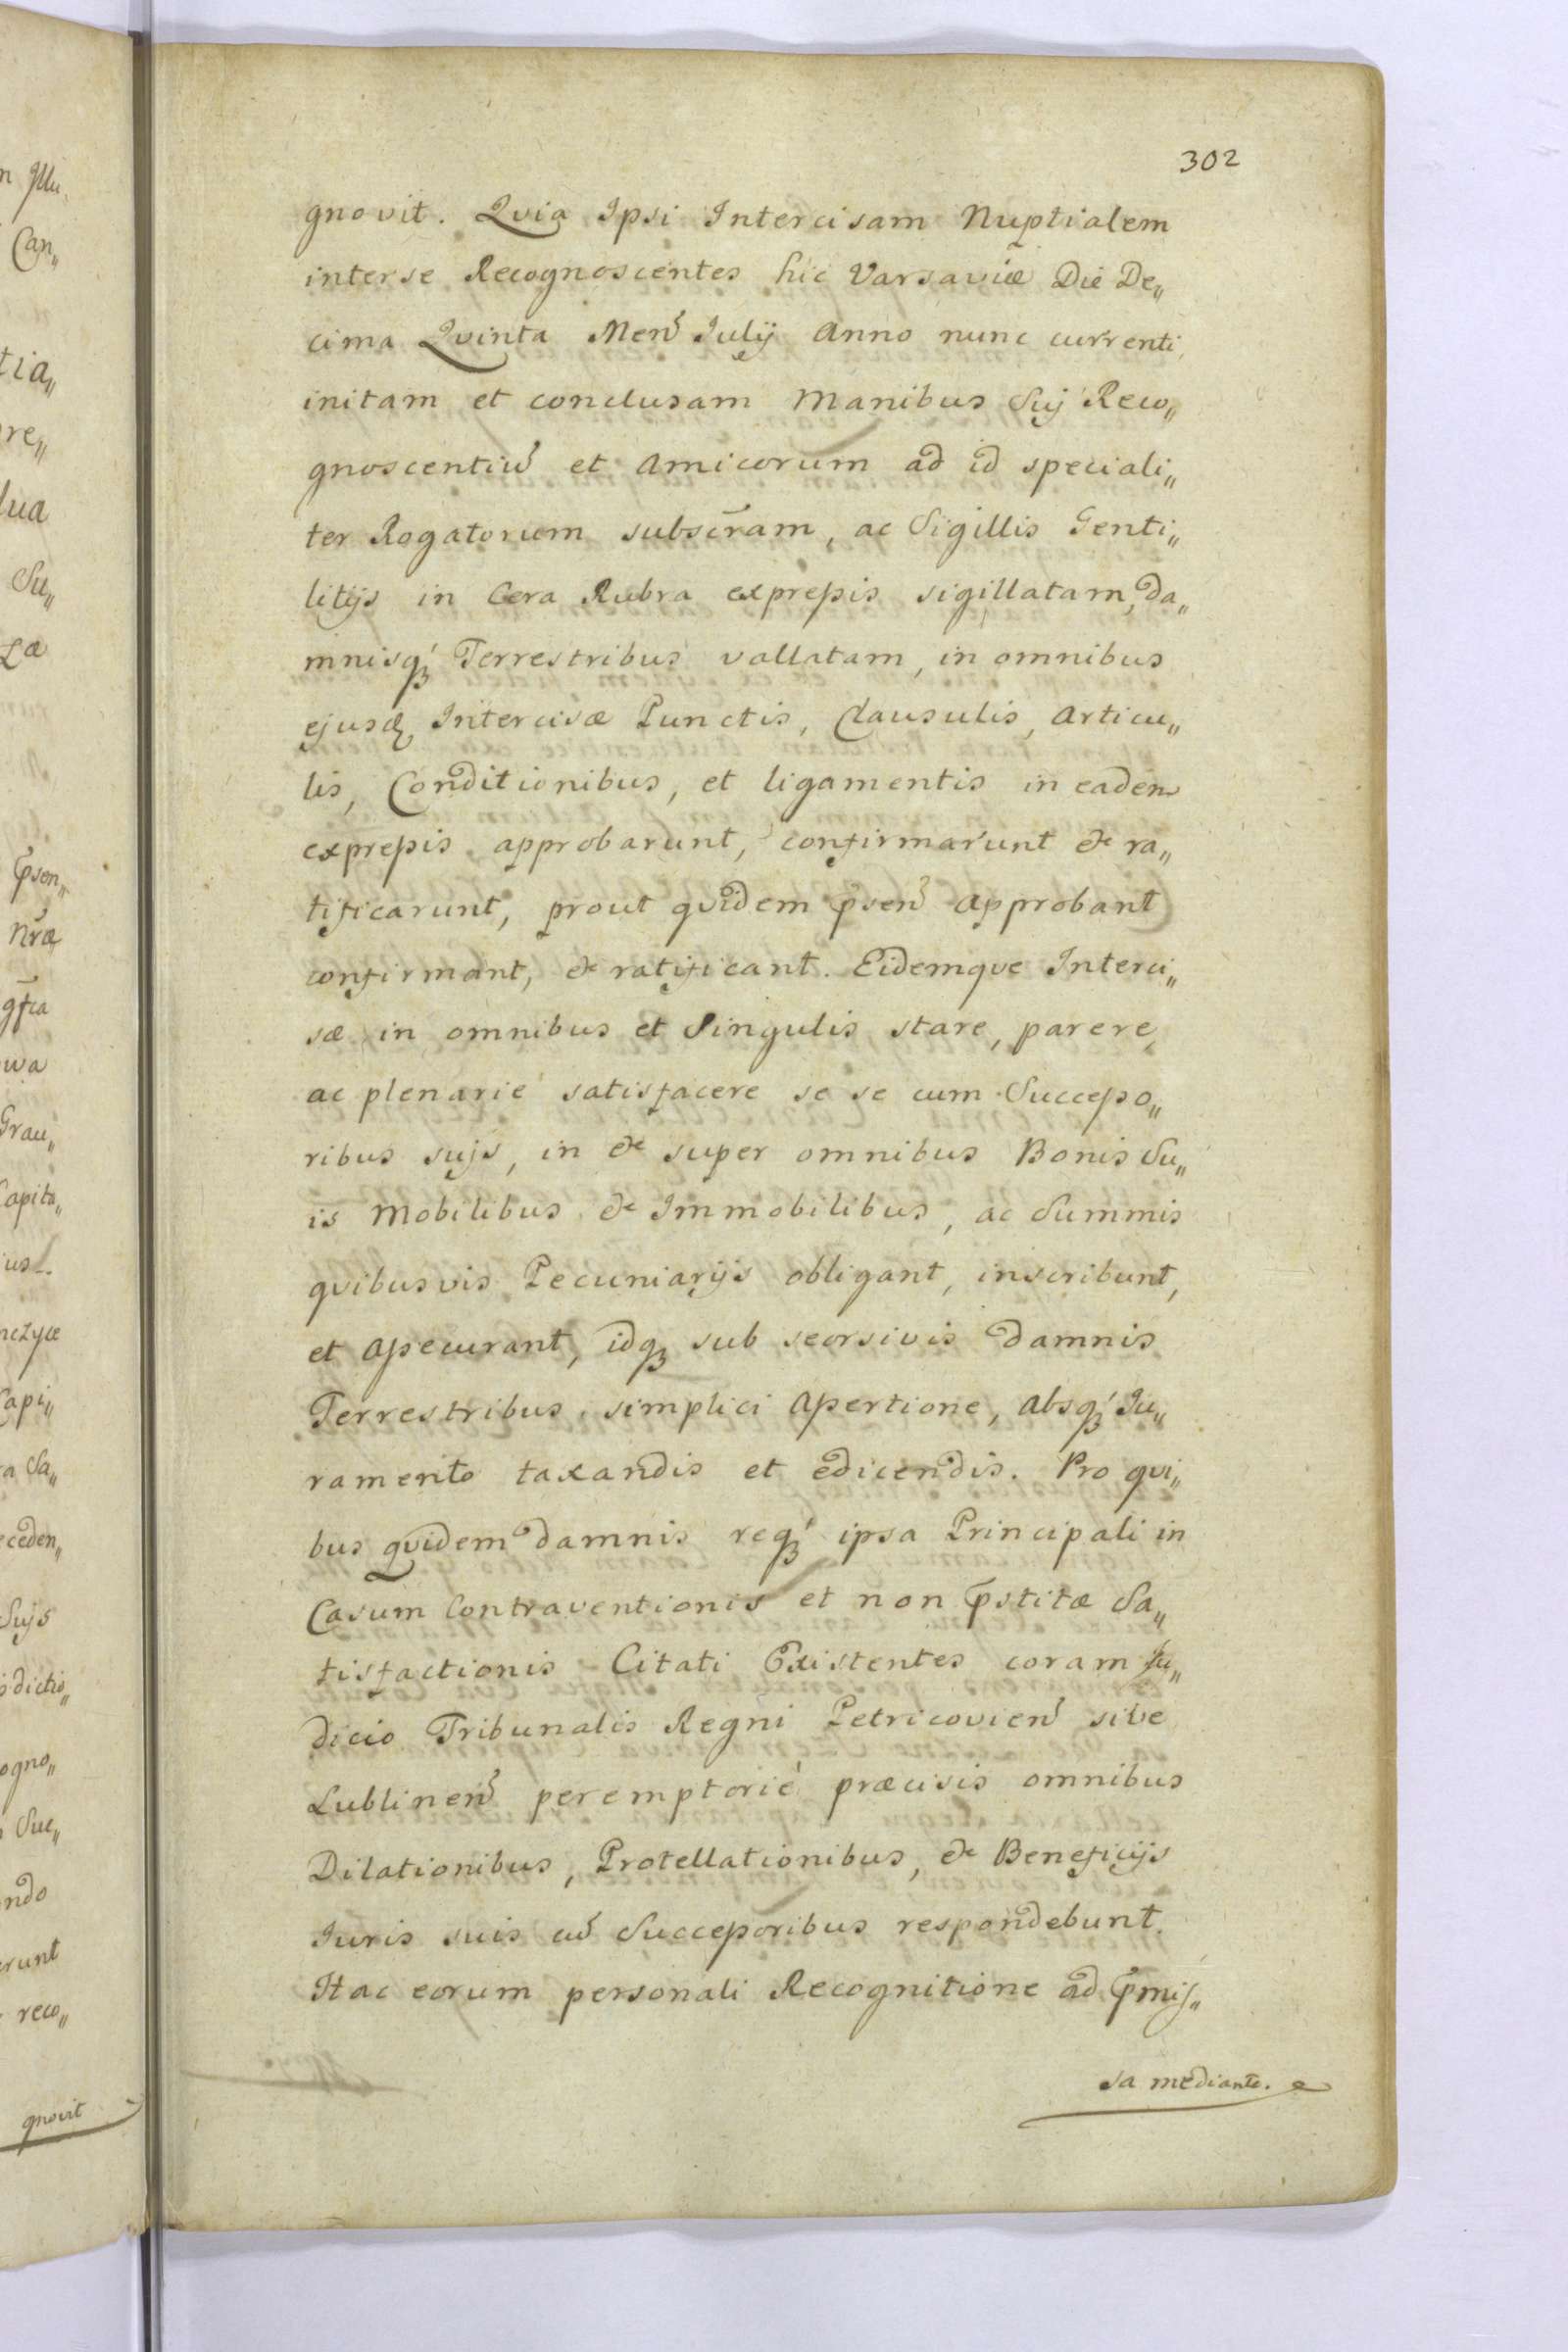 302
gnovit. Qvia Ipsi Intercisam Nuptialem
inter se Recognoscentes hic Varsaviæ Die De„
cima Qvinta Men̄ Julij Anno nunc currenti
initam et conclusam Manibus Suij Reco„
gnoscentiū et Amicorum ad id speciali„
ter Rogatorum subscr̄am, ac Sigillis Genti„
litijs in Cera Rubra expreſsis sigillatam, da„
mnisqꝫ Terrestribus vallatam, in omnibus
ejusdꝫ Intercisæ Punctis, Clausulis, Articu„
lis, Conditionibus, et ligamentis in eadem
expreſsis approbarunt, confirmarunt & ra„
tificarunt, prout qvidem p̄sen̄ approbant
confirmant, & ratificant. Eidemqve Interci„
sæ in omnibus et Singulis stare, parere,
ac plenarie satisfacere se se cum Succeſso„
ribus suijs, in & super omnibus Bonis Su„
is Mobilibus & Immobilibus, ac Summis
qvibusvis Pecuniarijs obligant, inscribunt,
et aſsecurant, idqꝫ sub seorsivis damnis
Terrestribus, simplici aſsertione, absqꝫ Ju„
ramento taxandis et edicendis. Pro qvi„
bus qvidem damnis reqꝫ ipsa Principali in
Casum Contraventionis et non p̄stitæ Sa„
tisfactionis Citati Existentes coram Ju„
dicio Tribunalis Regni Petricovien̄ sive
Lublinen̄ peremptorié præcisis omnibus
Dilationibus, Protellationibus, & Beneficijs
Juris suis cū Succeſsoribus respondebunt.
Hac eorum personali Recognitione ad p̄miſ„
sa mediante.
n Illu„
Can„
tia„
re„
lua
Su„
p̄sen„
nr̄æ
wa
Grau„
Capita„
Capi„
a Sa„
eceden„
Suijs
dictio„
ogno„
Suc„
ndo
erunt
reco„
gnovit